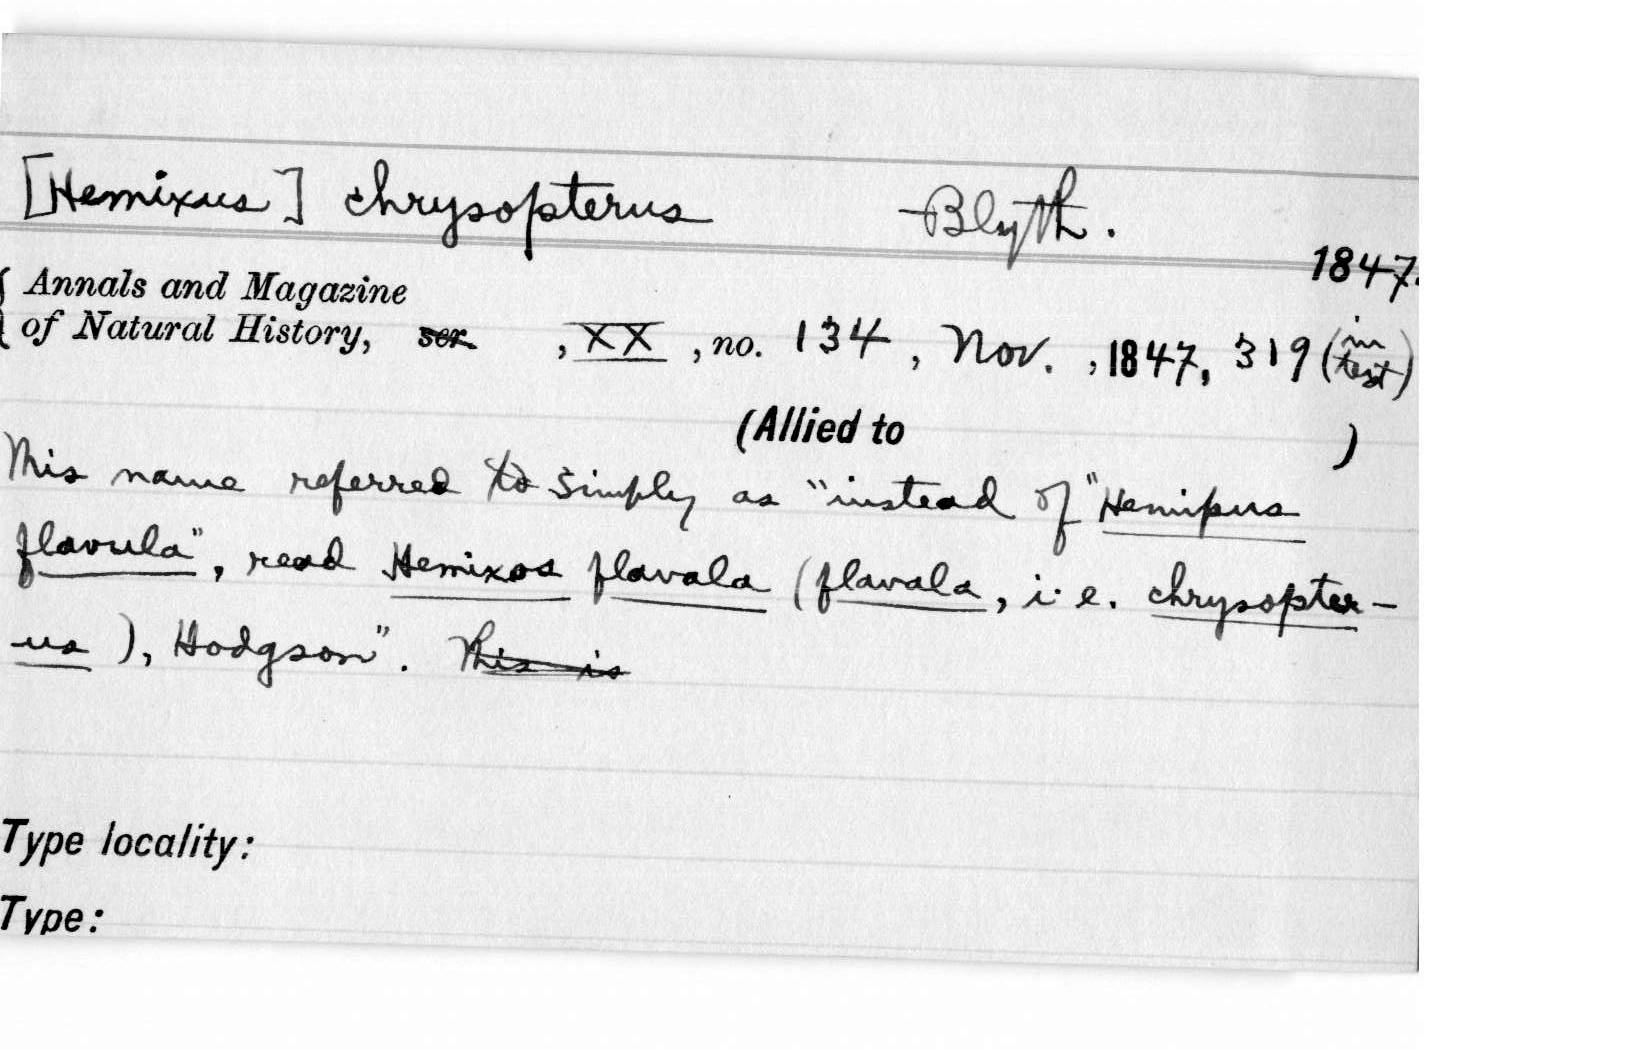 [Hemixus] chrysopterus Blyth.
1847.
Annals and Magazine
of Natural History, ser. , XX , no. 134 , Nov. , 1847, 319 (in text)
(Allied to )
This name referred to simply as "instead of "Hemipus
flavula", read Hemixos flavala (flavala, i.e. chrysopter-
us), Hodgson". This is
Type locality:
Type: